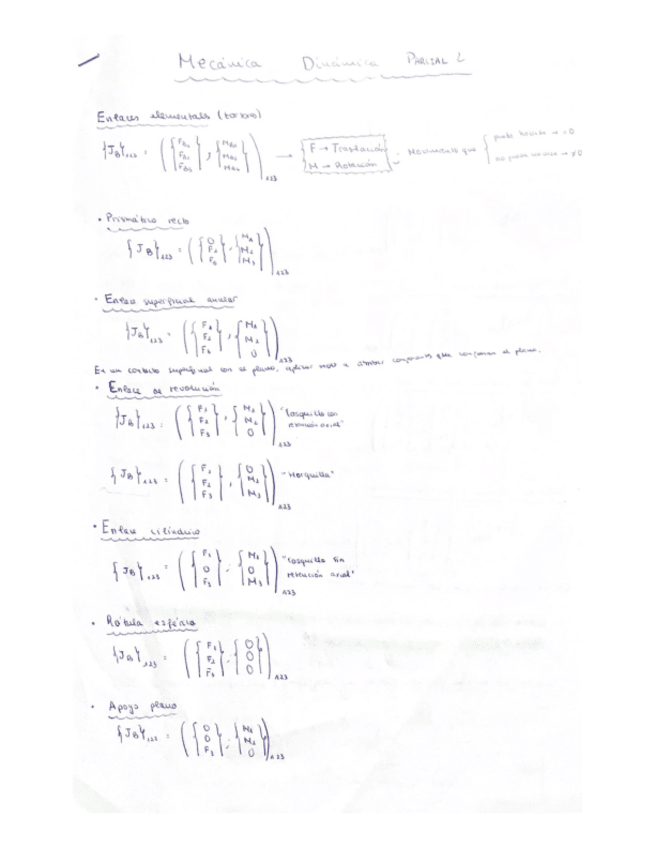 Mecánica Dinámica PARCIAL 2
Enlaces elementales (torsor)
{J_B}₁₂₃ = ({F_B1 F_B2 F_B3}, {M_B1 M_B2 M_B3})₁₂₃ → F → Traslación M → Rotación Movimiento que { puede hacerse → =0 no puede hacerse → ≠0
• Prismático recto
{J_B}₁₂₃ = ({0 F₂ F₃}, {M₁ M₂ M₃})₁₂₃
• Enlace superficial anular
{J_B}₁₂₃ = ({F₁ F₂ F₃}, {M₁ M₂ 0})₁₂₃
En un contacto superficial con el plano, aplicar a ambas que el plano.
• Enlace de revolución
{J_B}₁₂₃ = ({F₁ F₂ F₃}, {M₁ M₂ 0})₁₂₃ "Casquillo con retención axial"
{J_B}₁₂₃ = ({F₁ F₂ F₃}, {0 M₂ M₃})₁₂₃ "Horquilla"
• Enlace cilíndrico
{J_B}₁₂₃ = ({F₁ 0 F₃}, {M₁ 0 M₃})₁₂₃ "Casquillo sin retención axial"
• Rótula esférica
{J_B}₁₂₃ = ({F₁ F₂ F₃}, {0 0 0})₁₂₃
• Apoyo plano
{J_B}₁₂₃ = ({0 0 F₃}, {M₁ M₂ 0})₁₂₃